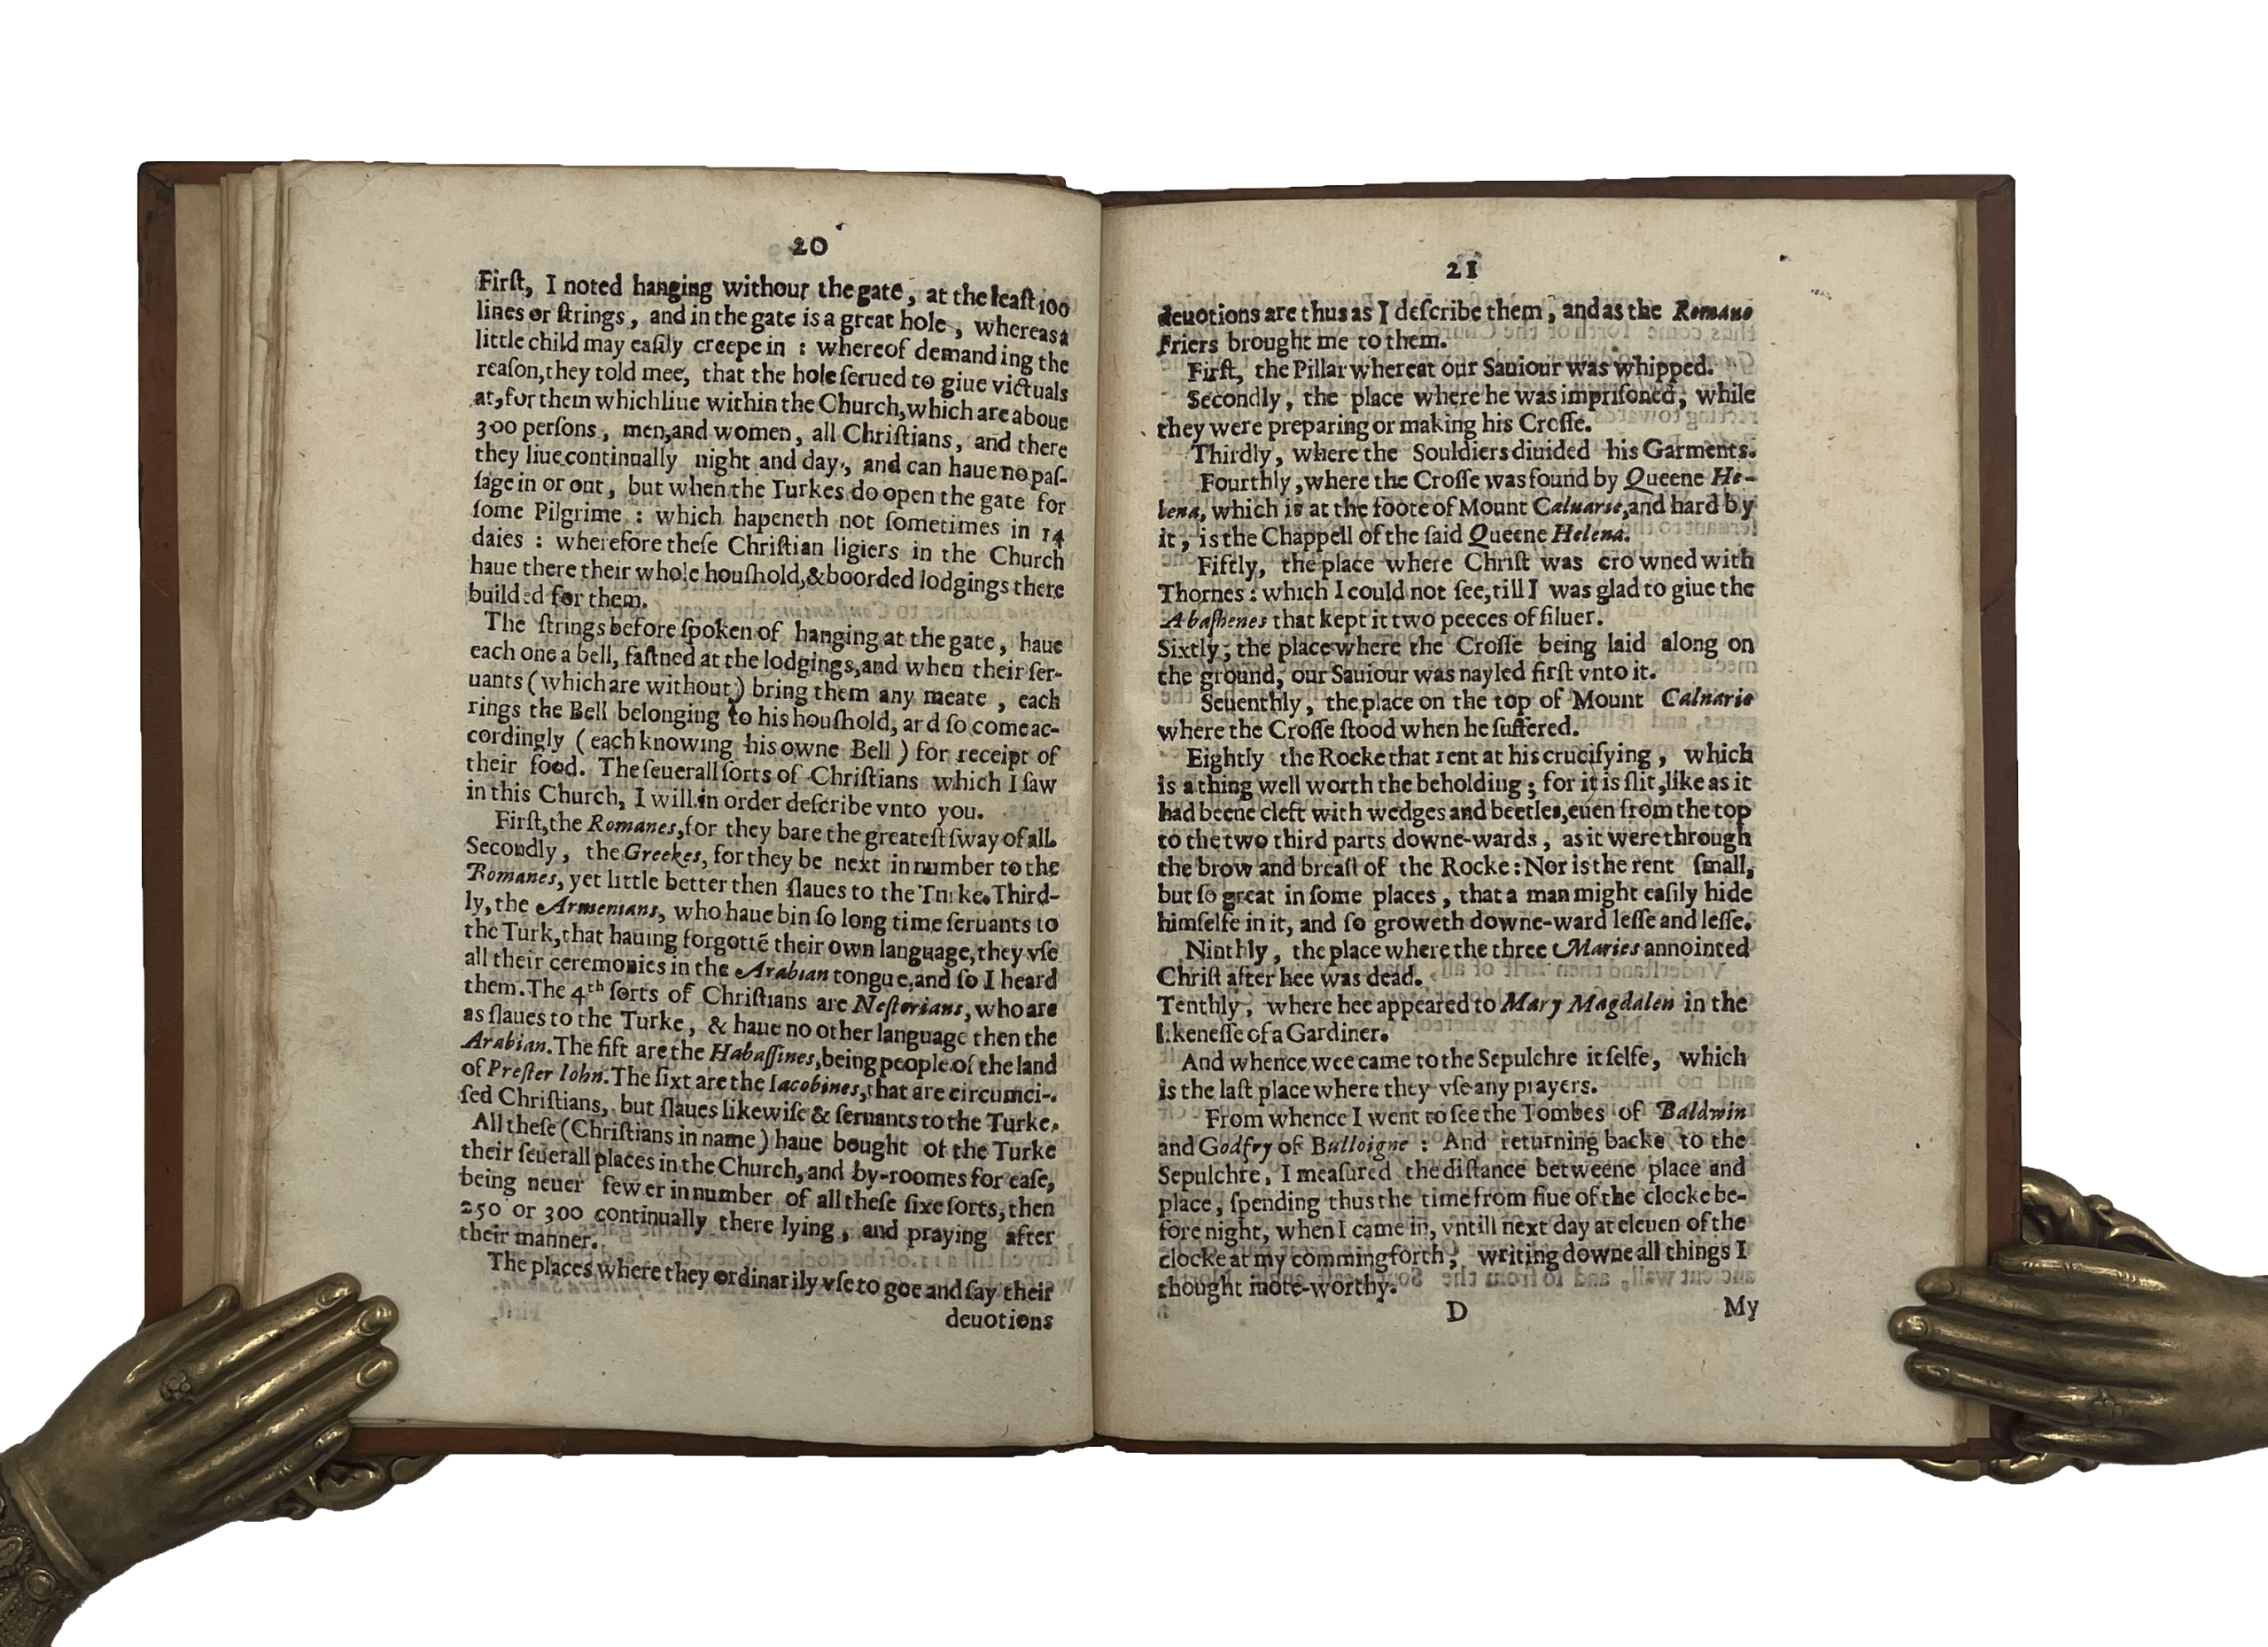 20
Firſt, I noted hanging without the gate, at the leaſt 100
lines or ſtrings, and in the gate is a great hole, whereas a
little child may eaſily creepe in : whereof demanding the
reaſon, they told mee, that the hole ſerued to giue victuals
at, for them which liue within the Church, which are aboue
300 perſons, men, and women, all Chriſtians, and there
they liue continually night and day, and can haue no paſ-
ſage in or out, but when the Turkes do open the gate for
ſome Pilgrime : which hapeneth not ſometimes in 14
daies : wherefore theſe Chriſtian ligiers in the Church
haue there their whole houſhold, & boorded lodgings there
builded for them.
The ſtrings before ſpoken of hanging at the gate, haue
each one a bell, faſtned at the lodgings, and when their ſer-
uants (which are without) bring them any meate, each
rings the Bell belonging to his houſhold, ar d ſo come ac-
cordingly (each knowing his owne Bell) for receipt of
their food. The ſeuerall ſorts of Chriſtians which I ſaw
in this Church, I will in order deſcribe vnto you.
Firſt, the Romanes, for they bare the greateſt ſway of all.
Secondly, the Greekes, for they be next in number to the
Romanes, yet little better then ſlaues to the Turke. Third-
ly, the Armenians, who haue bin ſo long time ſeruants to
the Turk, that hauing forgottē their own language, they vſe
all their ceremonies in the Arabian tongue, and ſo I heard
them. The 4th ſorts of Chriſtians are Neſtorians, who are
as ſlaues to the Turke, & haue no other language then the
Arabian. The fift are the Habaſſines, being people of the land
of Preſter Iohn. The ſixt are the Iacobines, that are circumci-
ſed Chriſtians, but ſlaues likewiſe & ſeruants to the Turke.
All theſe (Chriſtians in name) haue bought of the Turke
their ſeuerall places in the Church, and by-roomes for eaſe,
being neuer fewer in number of all theſe ſixe ſorts, then
250 or 300 continually there lying, and praying after
their manner.
The places where they ordinarily vſe to goe and ſay their
deuotions
21
deuotions are thus as I deſcribe them, and as the Romane
Friers brought me to them.
Firſt, the Pillar whereat our Sauiour was whipped.
Secondly, the place where he was impriſoned, while
they were preparing or making his Croſſe.
Thirdly, where the Souldiers diuided his Garments.
Fourthly, where the Croſſe was found by Queene He-
lena, which is at the foote of Mount Caluarie, and hard by
it, is the Chappell of the ſaid Queene Helena.
Fiftly, the place where Chriſt was crowned with
Thornes : which I could not ſee, till I was glad to giue the
Abaſhenes that kept it two peeces of ſiluer.
Sixtly, the place where the Croſſe being laid along on
the ground, our Sauiour was nayled firſt vnto it.
Seuenthly, the place on the top of Mount Caluarie
where the Croſſe ſtood when he ſuffered.
Eightly the Rocke that rent at his crucifying, which
is a thing well worth the beholding ; for it is ſlit, like as it
had beene cleft with wedges and beetles, euen from the top
to the two third parts downe-wards, as it were through
the brow and breaſt of the Rocke : Nor is the rent ſmall,
but ſo great in ſome places, that a man might eaſily hide
himſelfe in it, and ſo groweth downe-ward leſſe and leſſe.
Ninthly, the place where the three Maries annointed
Chriſt after hee was dead.
Tenthly, where hee appeared to Mary Magdalen in the
likeneſſe of a Gardiner.
And whence wee came to the Sepulchre it ſelfe, which
is the laſt place where they vſe any prayers.
From whence I went to ſee the Tombes of Baldwin
and Godfry of Bulloigne : And returning backe to the
Sepulchre, I meaſured the diſtance betweene place and
place, ſpending thus the time from fiue of the clocke be-
fore night, when I came in, vntill next day at eleuen of the
clocke at my comming forth, writing downe all things I
thought note-worthy.
D
My